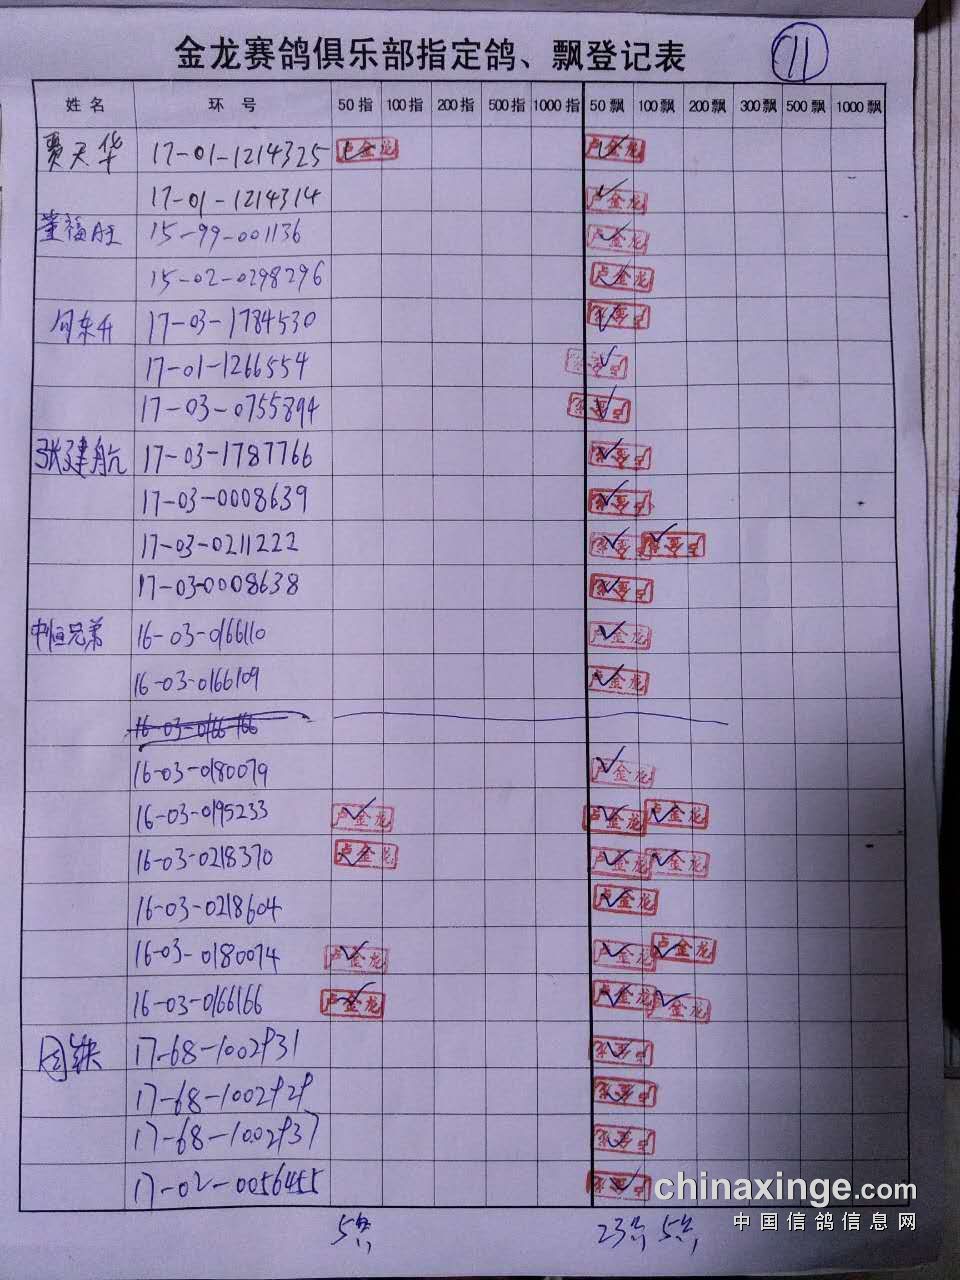 金龙赛鸽俱乐部指定鸽、飘登记表 11
姓名 环号 50指 100指 200指 500指 1000指 50飘 100飘 200飘 300飘 500飘 1000飘
贾天华 17-01-1214325 卢金龙 卢金龙
17-01-1214314 卢金龙
董福旺 15-99-001136 卢金龙
15-02-0298296 卢金龙
17-03-1784530 卢金龙
17-01-1266554 卢金龙
17-03-0755894 卢金龙
张建航 17-03-1787766 卢金龙
17-03-0008639 卢金龙
17-03-0211222 卢金龙 卢金龙
17-03-0008638 卢金龙
中恒兄弟 16-03-0166110 卢金龙
16-03-0166109 卢金龙
16-03-0166166
16-03-0180079 卢金龙
16-03-0195233 卢金龙 卢金龙 卢金龙
16-03-0218370 卢金龙 卢金龙 卢金龙
16-03-0218604 卢金龙
16-03-0180074 卢金龙 卢金龙 卢金龙
16-03-0166166 卢金龙 卢金龙 卢金龙
17-68-1002931 卢金龙
17-68-1002929 卢金龙
17-68-1002937 卢金龙
17-02-0056455 卢金龙
5 23 5
chinaxinge.com
中国信鸽信息网